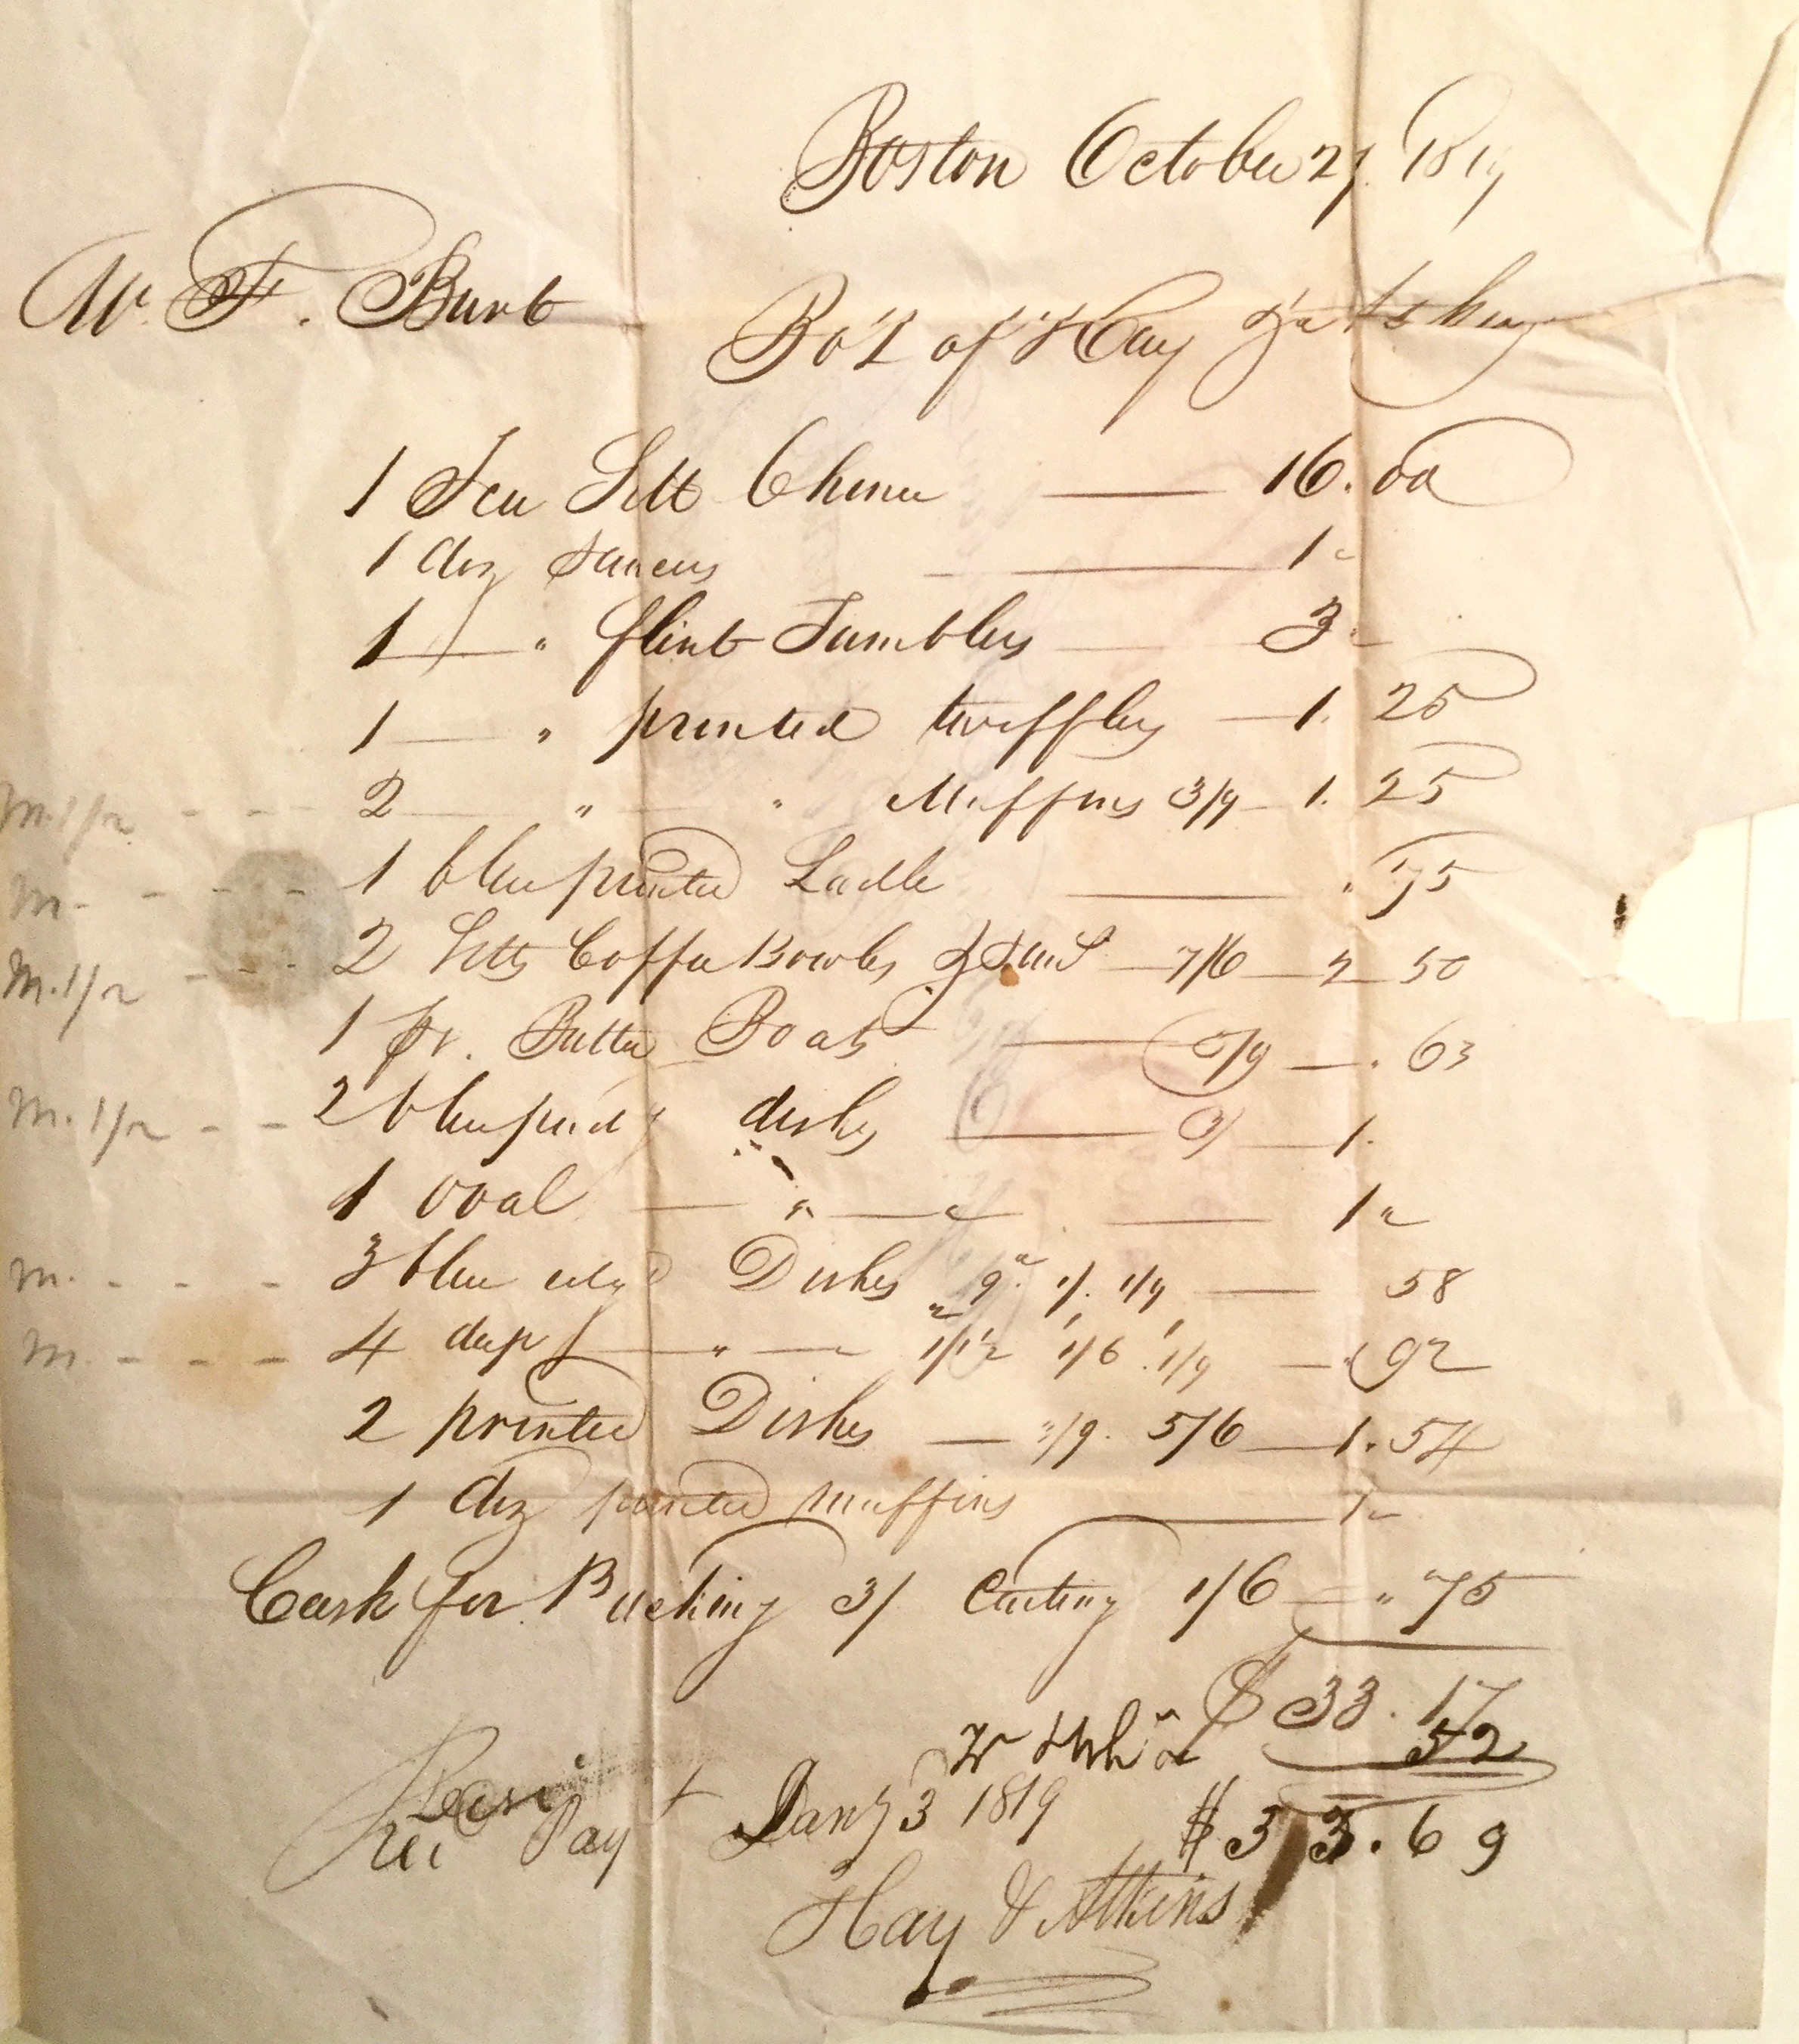 Boston October 27. 181
Mr. F. Burt
Bo't of Hay & Atkins
1 Tea Sett China — 16. 00
1 doz Saucers — 1 "
1 — " flint Tumblers — 3 "
1 — " printed twifflers — 1. 25
m. 1/2 - - - 2 — " — " Muffins 3/9 — 1. 25
m. - - - - 1 blue printed Ladle — . 75
m. 1/2 - - - 2 Setts Coffee Bowls & Sauc — 7/6 — 2 50
1 pr. Butter Boats — 3/9 — . 63
m. 1/2 - - 2 blue prid dishes — 3/ — 1.
1 oval — " — " — 1 "
m. - - - 3 blue edg'd Dishes " 9d. 1/. 1/9, — 58
m. - - - 4 deep — " — 1/ 1/2 1/6 . 1/9 — " 92
2 printed Dishes — 3/9. 5/6 — 1. 54
1 doz printed muffins — 1 "
Cash for Bucking 3/ Carting 1/6 — " 75
$ 33. 17
52
Rec Pay Jany 3 1819 $ 33. 69
Hay & Atkins